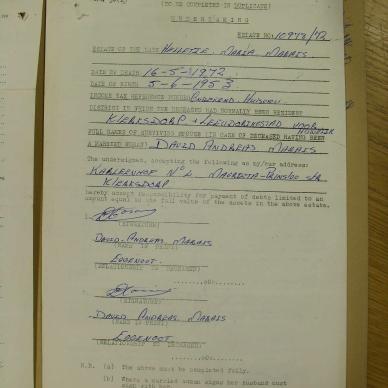 (TO BE COMPLETED IN DUPLICATE)
UNDERTAKING
ESTATE NO. 10978/72
ESTATE OF THE LATE HAILETJE MARIA MARAIS
DATE OF DEATH 16-5-1972
DATE OF BIRTH 5-6-1953
INCOME TAX REFERENCE NUMBER ONBEKEND HUISVROU
DISTRICT IN WHICH THE DECEASED HAD NORMALLY BEEN RESIDENT
KLERKSDORP + LEEUDORINGSTAD
FULL NAMES OF SURVIVING SPOUSE (IN CASE OF DECEASED HAVING BEEN
A MARRIED WOMAN) DAVID ANDREAS MARAIS
The undersigned, accepting the following as my/our address:
KARLEENHOF No 4 STR
KLERKSDORP
hereby accept responsibility for payment of debts limited to an
amount equal to the full value of the assets in the above estate.
(SIGNATURE)
DAVID ANDREAS MARAIS
(NAME IN PRINT)
EGGENOOT
(RELATIONSHIP TO DECEASED)
(SIGNATURE)
DAVID ANDREAS MARAIS
(NAME IN PRINT)
EGGENOOT
(RELATIONSHIP TO DECEASED)
N.B. (a) The above must be completed fully.
(b) Where a married woman signs her husband must